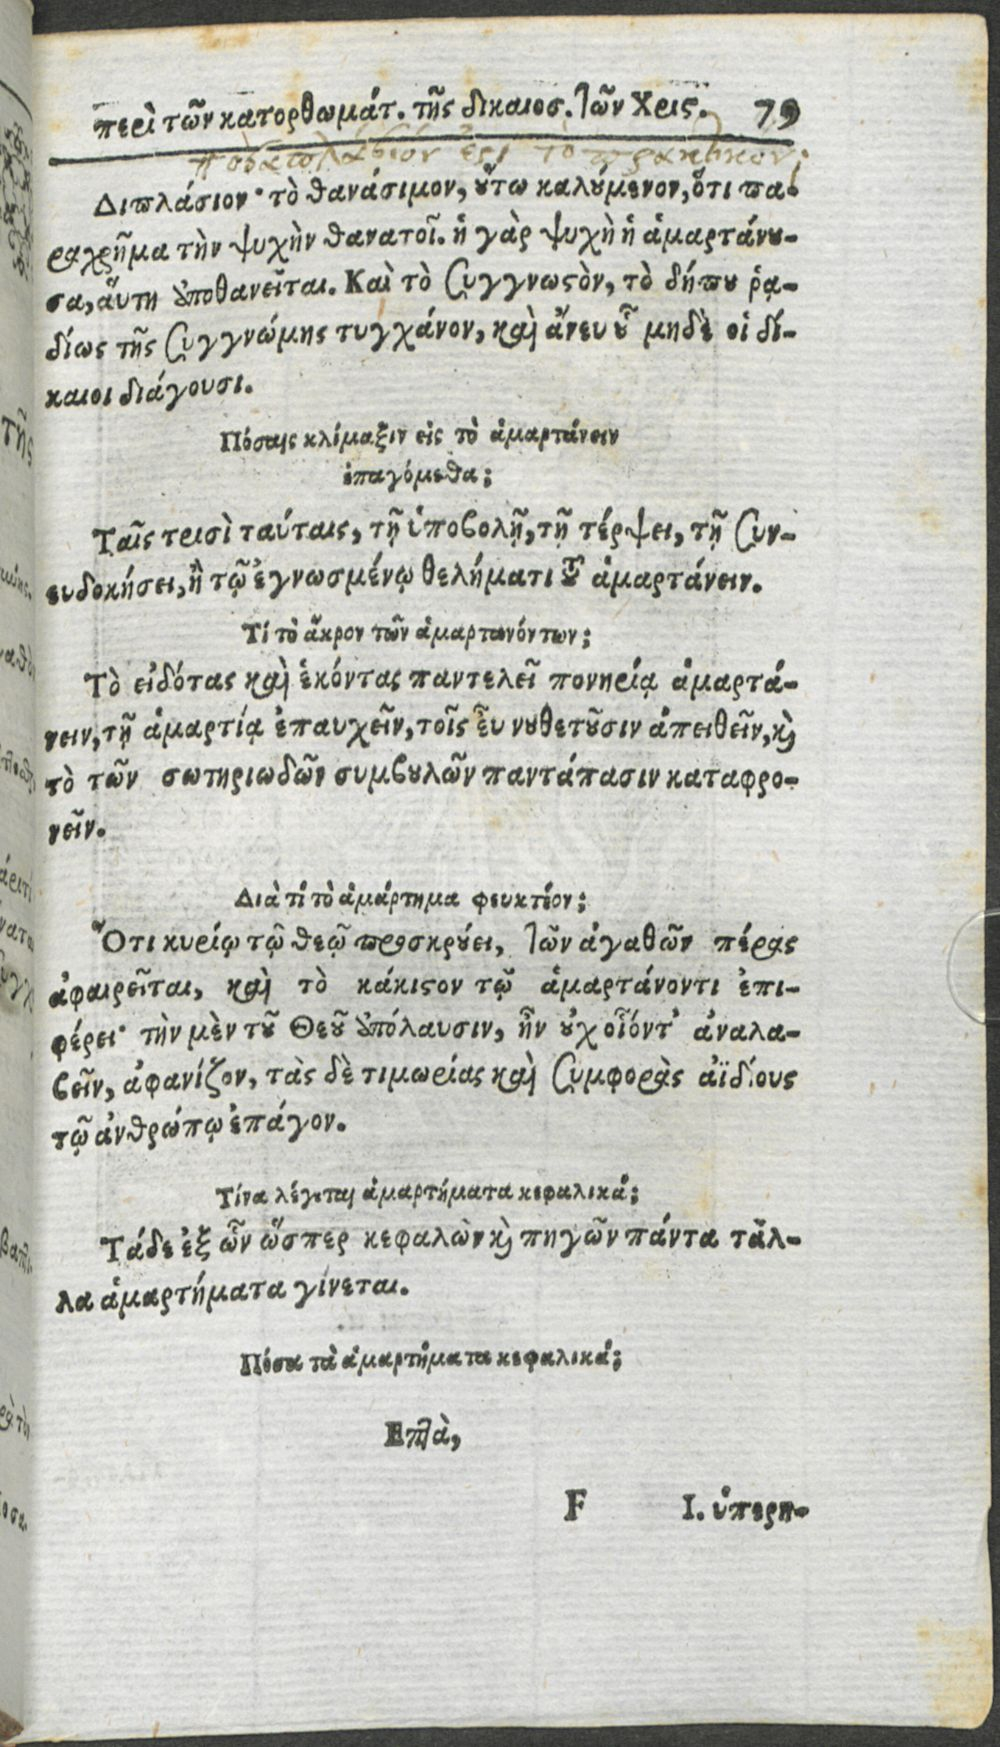 περὶ τῶν κατορθωμάτ. τῆς δικαιοσ. τῶν Χρις. 79
Διπλάσιον· τὸ θανάσιμον, ȣ̓́τω καλȣ́μενον, ὅτι πα-
ραχρῆμα τὴν ψυχὴν θανατοῖ. ἡ γὰρ ψυχὴ ἡ ἁμαρτάνȣ-
σα, ἅυτη ἀποθανεῖται. Καὶ τὸ συγγνωϛὸν, τὸ δήπȣ ῥᾳ-
δίως τῆς συγγνώμης τυγχάνον, καὶ ἄνευ ȣ̔͂ μηδὲ οἱ δί-
καιοι διάγουσι.
Πόσαις κλίμαξιν εἰς τὸ ἁμαρτάνειν
ἐπαγόμεθα;
Ταῖς τρισὶ ταύταις, τῇ ὑποβολῇ, τῇ τέρψει, τῇ συν-
ευδοκήσει, ἢ τῷ ἐγνωσμένῳ θελήματι τȣ͂ ἁμαρτάνειν.
Τί τὸ ἄκρον τῶν ἁμαρτανόντων;
Τὸ εἰδότας καὶ ἑκόντας παντελεῖ πονηρίᾳ ἁμαρτά-
νειν, τῇ ἁμαρτίᾳ ἐπαυχεῖν, τοῖς ἖υ νȣθετȣ͂σιν ἀπειθεῖν, κὶ
τὸ τῶν σωτηριωδῶν συμβȣλῶν παντάπασιν καταφρο-
νεῖν.
Διὰ τί τὸ ἁμάρτημα φευκτέον;
Ὅτι κυρίῳ τῷ θεῷ προσκρȣ́ει, τῶν ἀγαθῶν πέρας
ἀφαιρεῖται, καὶ τὸ κάκιϛον τῷ ἁμαρτάνοντι ἐπι-
φέρει· τὴν μὲν τȣ͂ Θεȣ͂ ἀπόλαυσιν, ἣν ȣ̓χ οἷόντ' ἀναλα-
βεῖν, ἀφανίζον, τὰς δὲ τιμωρίας καὶ συμφορὰς αἰ̈δίους
τῷ ἀνθρώπῳ ἐπάγον.
Τίνα λέγεται ἁμαρτήματα κεφαλικά;
Τάδε ἐξ ὧν ὥσπερ κεφαλὼν κὶ πηγῶν πάντα τἄλ-
λα ἁμαρτήματα γίνεται.
Πόσα τὰ ἁμαρτήματα κεφαλικά;
Επτὰ,
F I. ὑπερη-